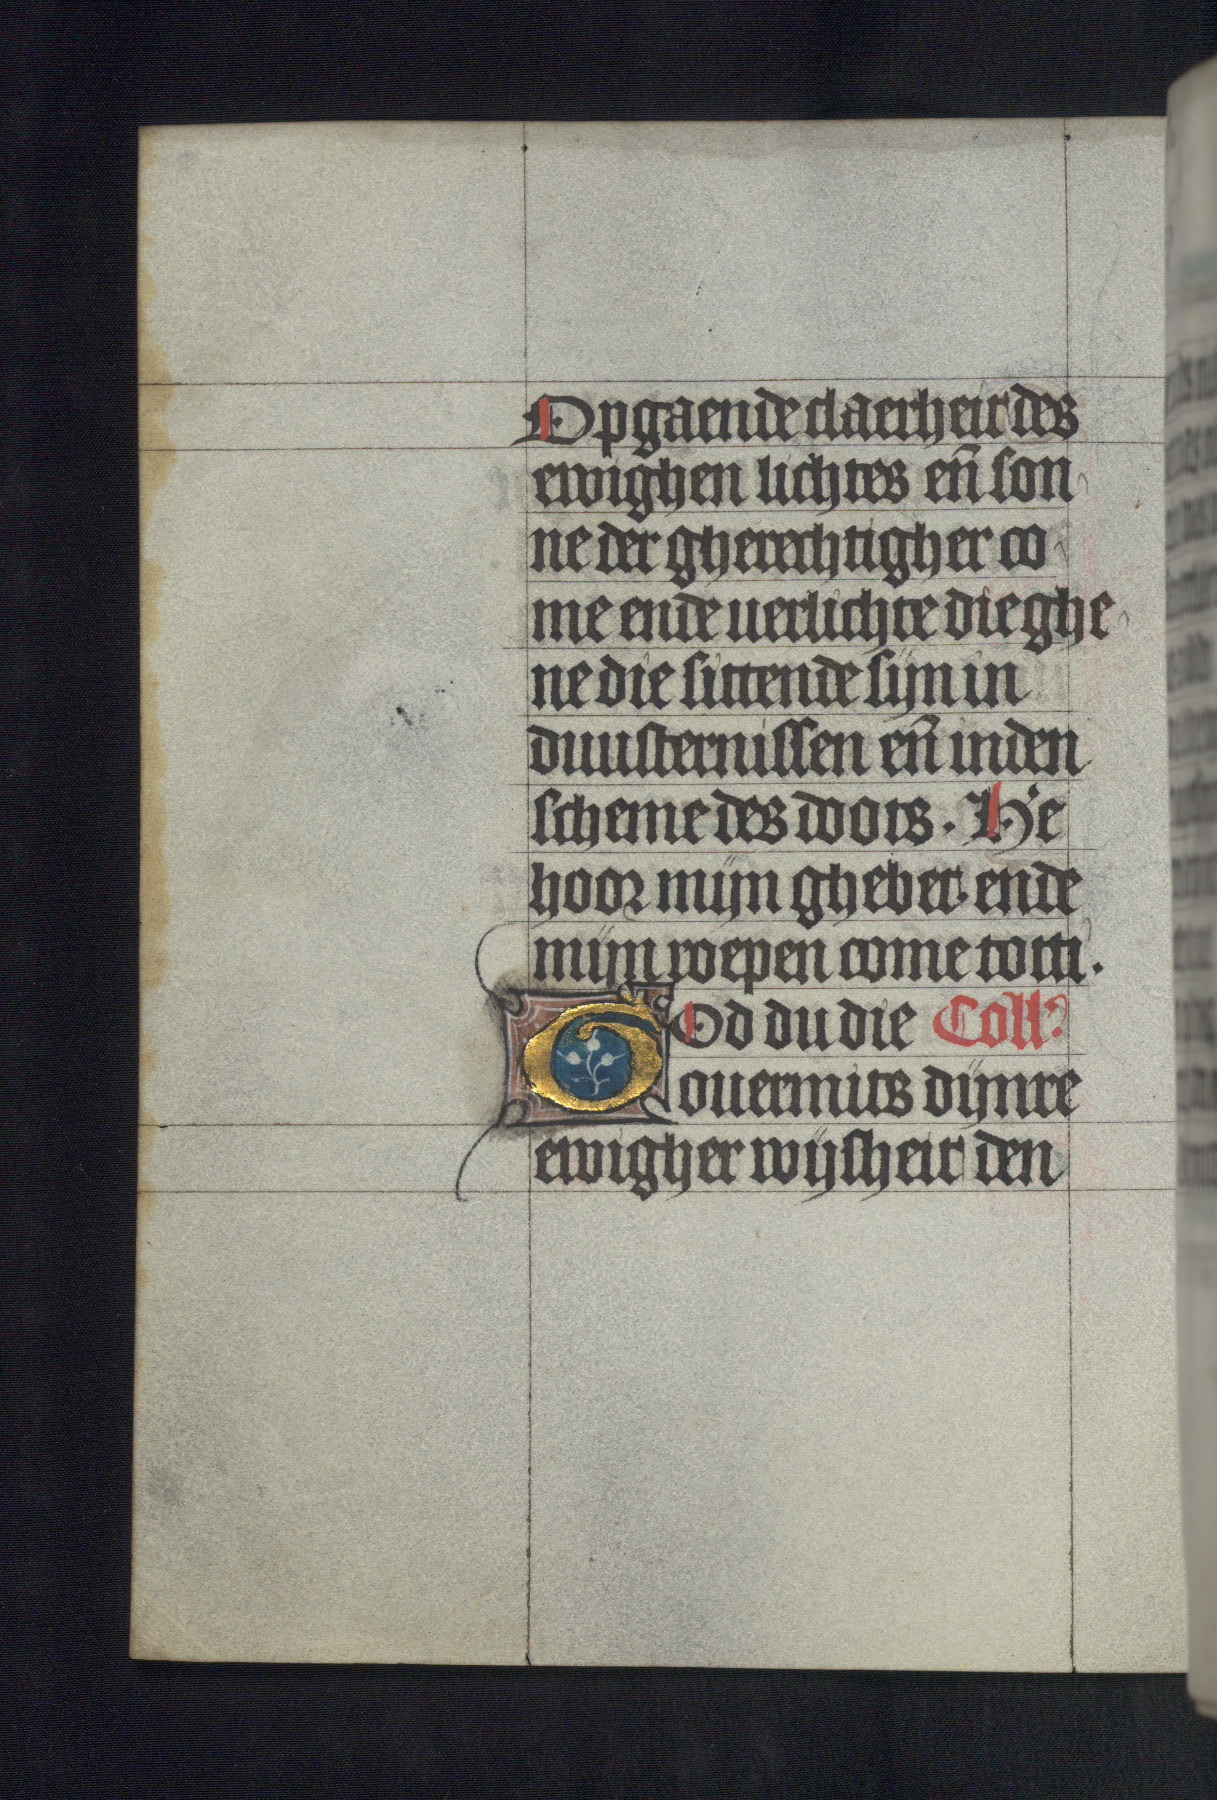 Opgaende claerheit des
ewighen lichtes eñ son
ne der gherechtigher co
me ende uerlichte die ghe
ne die sittende sijn in
duusternissen eñ in den
scheme des doots. He
hoor mijn ghebet. ende
mijn roepen come totti.
God du die Coll'
ouermits dijnre
ewigher wijsheit den